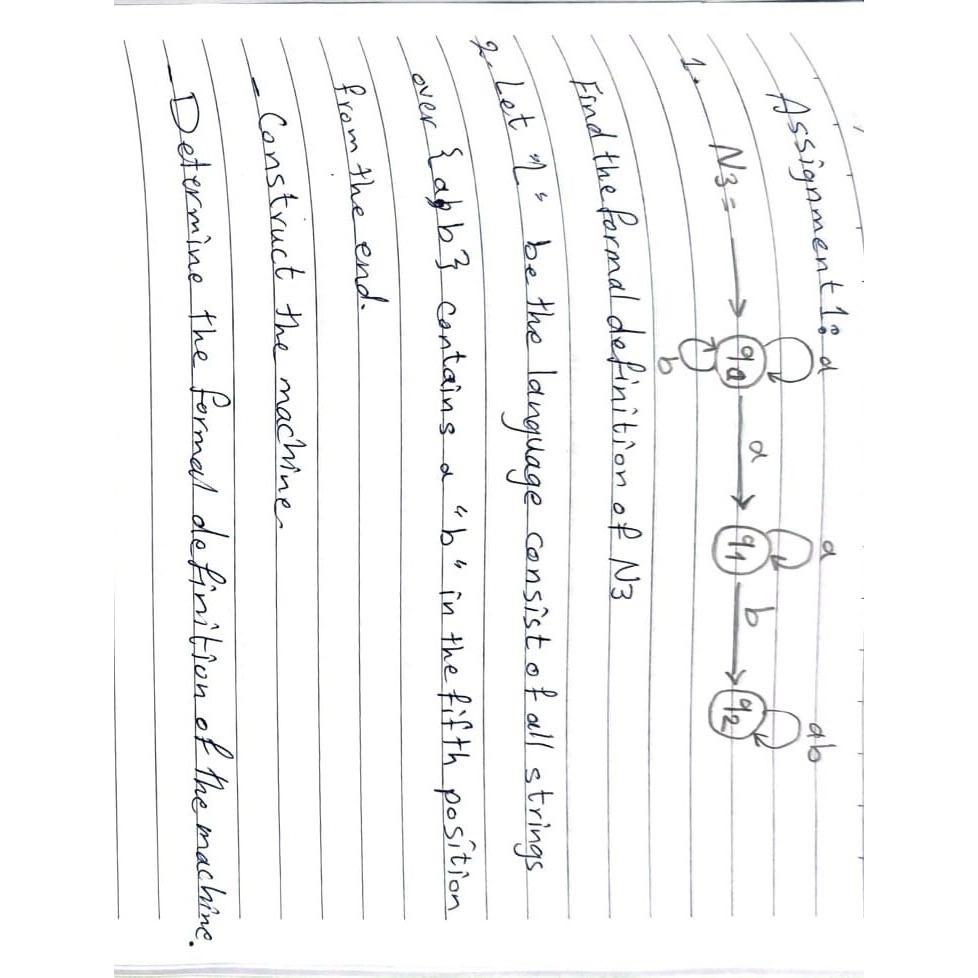 Assignment 1:
a a ab
1. N3 = q0 a q1 b q2
b
Find the formal definition of N3
2. Let "L" be the language consist of all strings
over {a,b} contains a "b" in the fifth position
from the end.
- Construct the machine.
- Determine the formal definition of the machine.